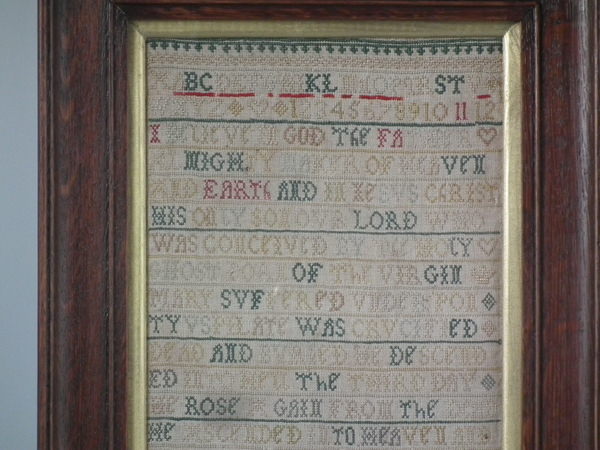 BC KL ST
12345678910 11 12
I BELIEVE IN GOD THE FA
MIGHTY MAKER OF HEAVEN
AND EARTH AND IN JESUS CHRIST
HIS ONLY SON OUR LORD
WAS CONCEIVED BY THE HOLY
GHOST BORN OF THE VIRGIN
MARY SUFFERED UNDER PON
TYUS PILATE WAS CRUCIFIED
DEAD AND BURIED HE DESCEND
ED INTO HELL THE THIRD DAY
HE ROSE A GAIN FROM THE
HE ASCENDED INTO HEAVEN AND